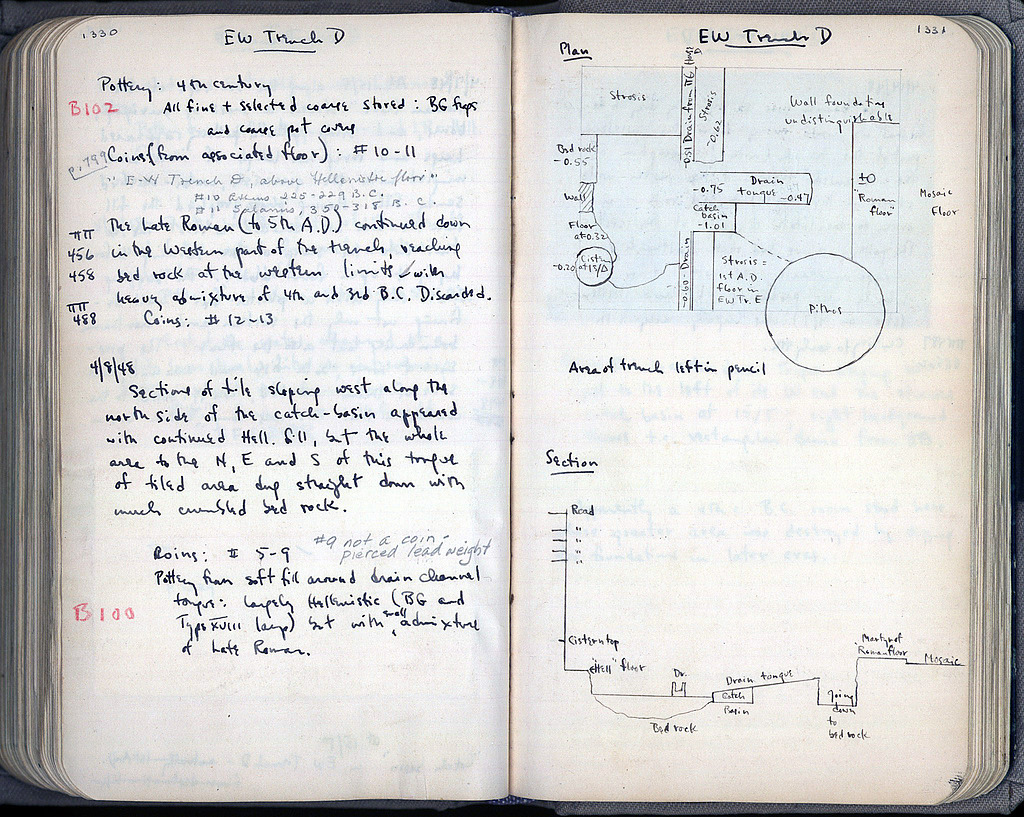 1330
EW Trench D
Pottery: 4th century
B102
All fine + selected coarse stored: BG frgs
and coarse pot covers
p. 799
Coins (from associated floor): #10-11
"E-W Trench D, above Hellenistic floor"
#10 225-229 B.C.
#11 Salamis, 350-318 B.C.
The Late Roman (to 5th A.D.) continued down
ΠΠ
456
in the western part of the trench, reaching
458
bed rock at the western limits with
heavy admixture of 4th and 3rd B.C. Discarded.
ΠΠ
488
Coins: #12-13
4/8/48
Sections of tile sloping west along the
north side of the catch-basin appeared
with continued Hell. fill, but the whole
area to the N, E and S of this tongue
of tiled area dug straight down with
much crumbled bed rock.
#9 not a coin -
pierced lead weight
Coins: # 5-9
Pottery from soft fill around drain channel
tongue: largely Hellenistic (BG and
B100
Type XVIII lamp) but with small admixture
of Late Roman.
1331
EW Trench D
Plan
Strosis
0.51 Drain from
Strosis
-0.62
Wall foundations
undistinguishable
Bed rock
-0.55
Wall
Floor
at 0.32
Cistern
at 15/Δ
-0.20
-0.75
Drain
tongue
-0.47
Catch
basin
-1.01
-0.60 Drain
Strosis =
1st A.D.
floor in
EW Tr. E
±0
"Roman
floor"
Mosaic
Floor
Pithos
Area of trench left in pencil
Section
Road
"
"
"
"
Cistern top
"Hell" floor
Dr.
Drain tongue
Catch
Basin
Bed rock
Going
down
to
bed rock
Martyr of
Roman floor
Mosaic